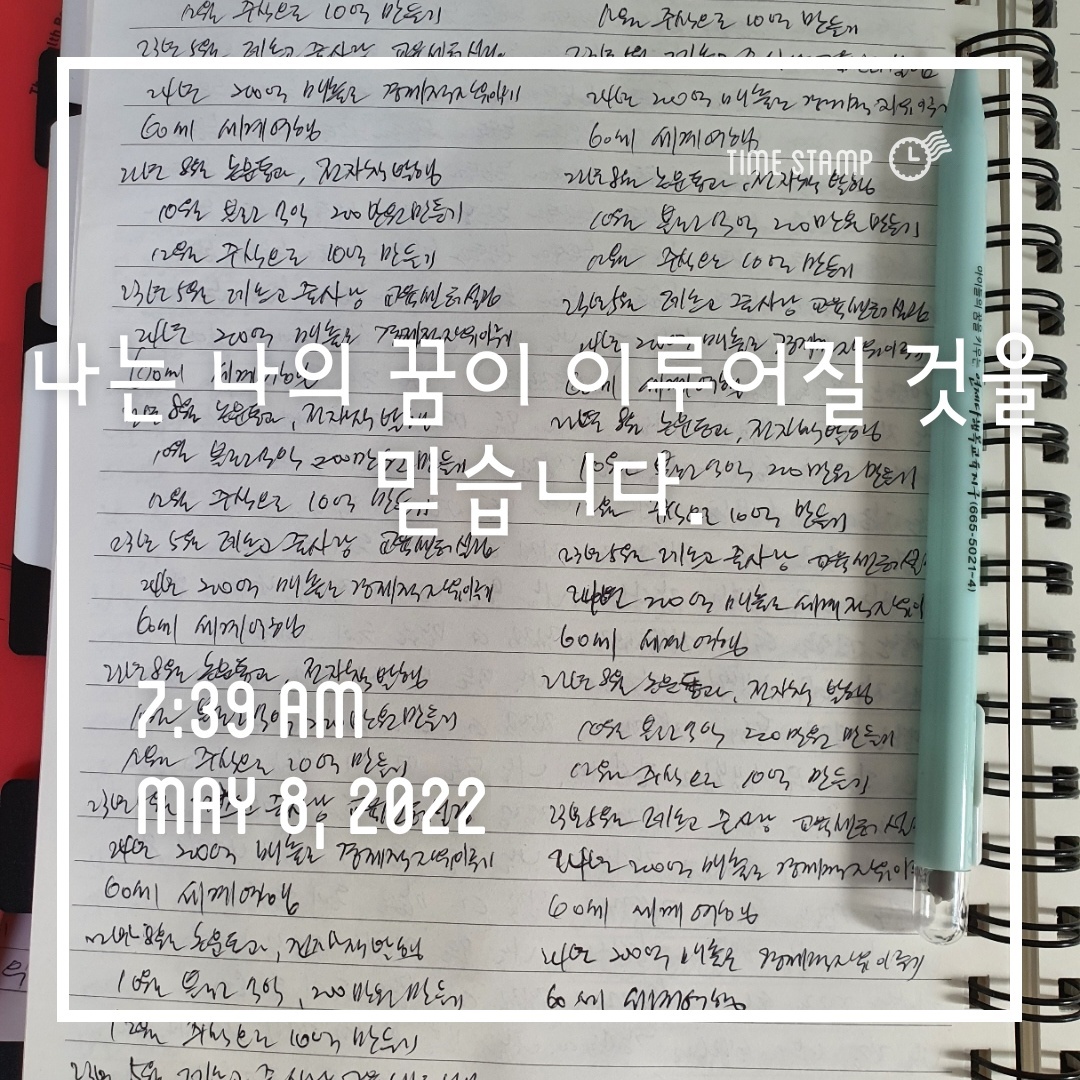 12월 주식으로 10억 만들기
12월 주식으로 10억 만들기
23년 5월
24년 200억 매출로 경제적자유이루기
24년 200억 매출로 경제적 자유이루기
60세 세계여행
60세 세계여행
TIME STAMP
22년 8월 논문통과, 전자책 발행
22년 8월 논문통과, 전자책 발행
10월 블로그수익 200만원 만들기
10월 블로그수익 200만원 만들기
12월 주식으로 10억 만들기
12월 주식으로 10억 만들기
23년 5월 교육센터설립
23년 5월 교육센터설립
24년 200억 매출로 경제적자유이루기
24년 200억 매출로 경제적자유이루기
나는 나의 꿈이 이루어질 것을
믿습니다.
60세 세계여행
60세 세계여행
22년 8월 논문통과, 전자책 발행
22년 8월 논문통과, 전자책 발행
10월 블로그수익 200만원 만들기
10월 블로그수익 200만원 만들기
12월 주식으로 10억 만들기
12월 주식으로 10억 만들기
23년 5월 교육센터설립
23년 5월 교육센터설
24년 200억 매출로 경제적자유이루기
24년 200억 매출로 세계적자유이
60세 세계여행
60세 세계여행
22년 8월 논문통과, 전자책 발행
22년 8월 논문통과, 전자책 발행
7:39 AM
10월 블로그수익 200만원 만들기
10월 블로그수익 200만원 만들기
12월 주식으로 20억 만들기
12월 주식으로 10억 만들기
MAY 8, 2022
23년 5월 교육센터설립
23년 5월 교육센터설
24년 200억 매출로 경제적자유이루기
24년 200억 매출로 경제적자유이
60세 세계여행
60세 세계여행
22년 8월 논문통과, 전자책 발행
24년 200억 매출로 경제적자유이루기
10월 블로그수익, 200만원 만들기
60세 세계여행
12월 주식으로 10억 만들기
23년 5월
아이들의 꿈을 키우는
행복교육지구(665-5021~4)